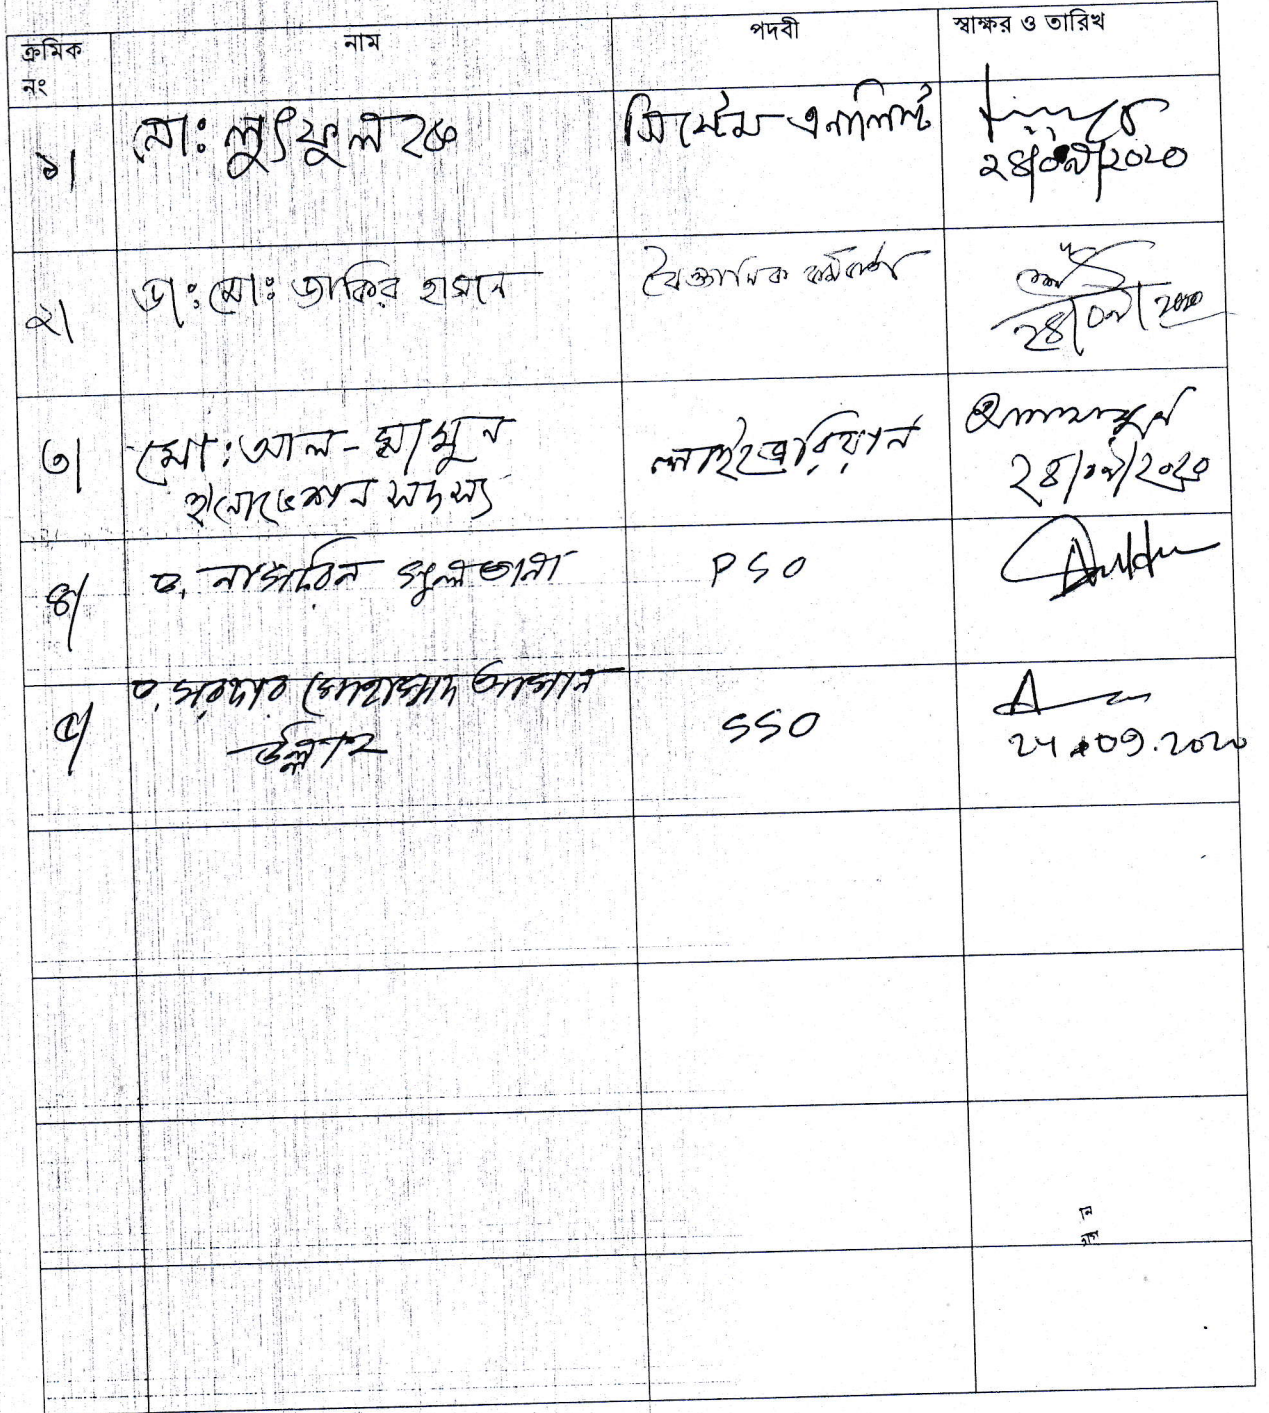 ক্রমিক নং নাম পদবী স্বাক্ষর ও তারিখ
১| মো: লুৎফুল হক সিস্টেম এনালিস্ট
২৪/০৯/২০২০
২| ডা: মো: জাকির হাসান বৈজ্ঞানিক কর্মকর্তা
২৪/০৯/২০২০
৩| মো: আল-মামুন লাইব্রেরিয়ান
ইনোভেশন সদস্য ২৪/০৯/২০২০
৪/ ড. নাসরিন সুলতানা PSO
৫/ ড. সরদার মোহাম্মদ আমান SSO
উল্লাহ 24.09.2020